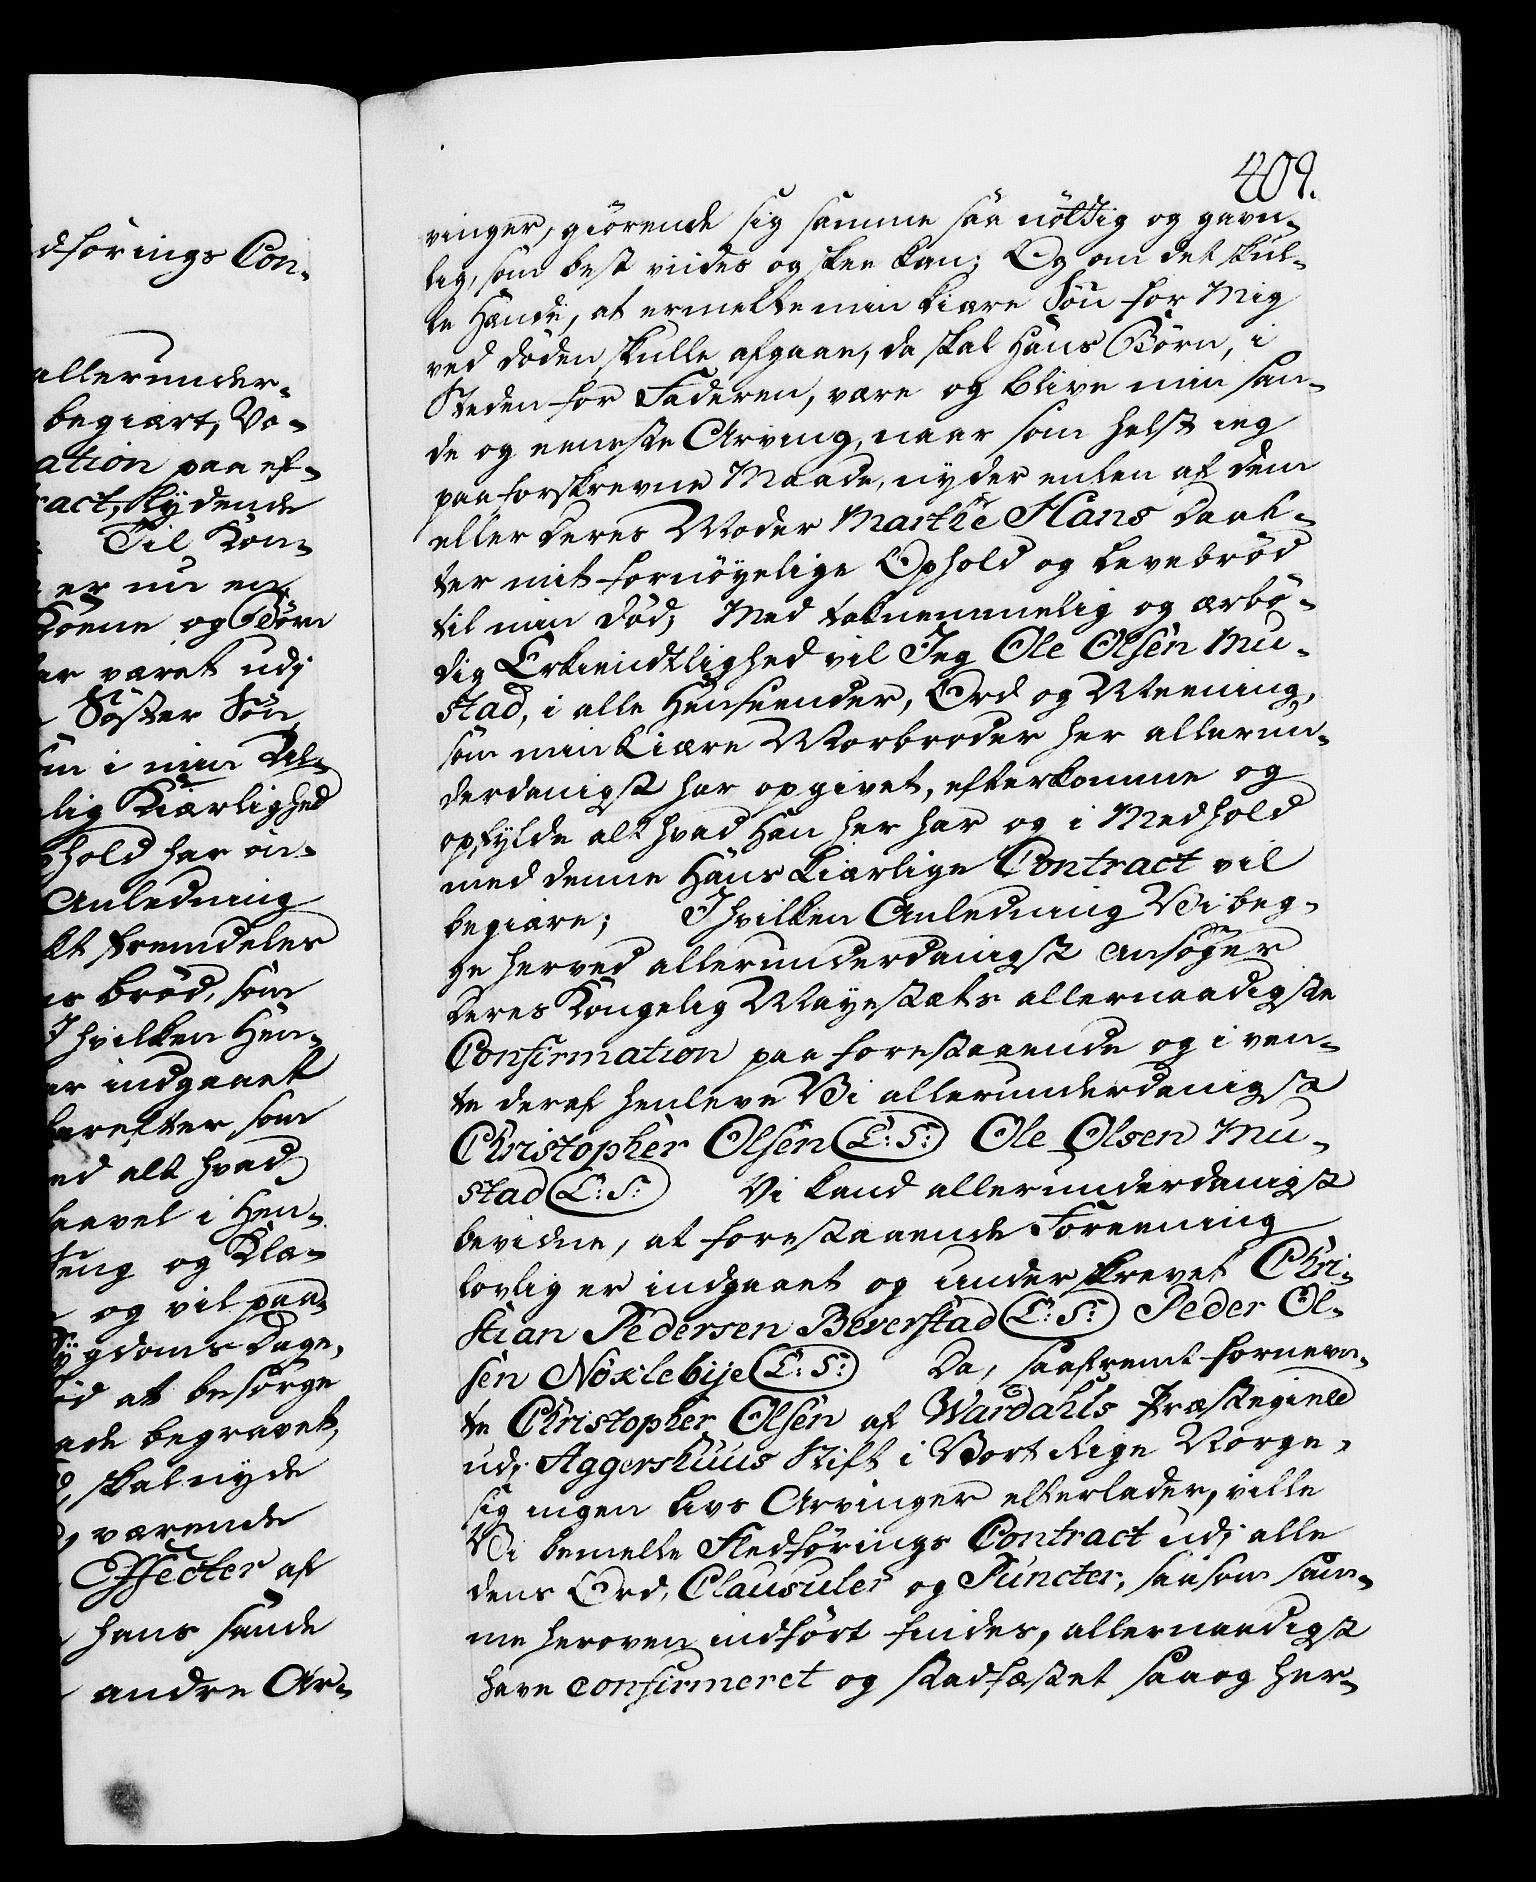 dförings Con-
allerunder-
begiært, Vo-
ation paa ef-
ract, lydende
Til Kon-
er nu en
Koene og Börn
er været udj
Söster Sön
in i min Al-
lig Kiærlighed
hold har øn-
Anledning
kt fremdeles
es bröd, som
I hvilken Hen-
er indgaaet
derefter som
ed alt hvad
saavel i Hen-
Seng og Klæ-
og vil paa-
Sygdoms Dage,
id at besørge
ade begravet,
skal nyde
værende
Effecter af
hans sande
andre Ar-
409.
vinger, giörende sig samme saa nöttig og gavn-
lig, som best viides og skee kan; Og om det skul-
le Hænde, at ermelte min kiære Sön for Mig
ved döden skulle afgaae, da skal Hans Börn, i
Steden for Faderen, være og blive min san-
de og eeneste Arving, naar som helst ieg
paa forskrevne Maade, nyder enten af dem
eller deres Moder Marthe Hans Daat-
ter mit fornöyelige Ophold og levebröd
til min Död; Med taknemmelig og ærbö-
dig Erkiendtlighed vil Jeg Ole Olsen Mu-
stad, i alle Henseender, Ord og Meening,
som min kiære Morbroder her allerun-
derdanigst har opgivet, efterkomme og
opfylde alt hvad Han her har og i Medhold
med denne Hans kiærlige Contract vil
begiære; I hvilken Anledning Vi beg-
ge herved allerunderdanigst ansöger
Deres Kongelig Mayestæts allernaadigste
Confirmation paa forestaaende og i ven-
te deraf henleve Vi allerunderdanigst
Christopher Olsen (L: S:) Ole Olsen Mu-
stad (L: S:) Vi kand allerunderdanigst
bevidne, at forestaaende Foreening
lovlig er indgaaet og underskrevet Chri-
stian Pedersen Beverstad (L: S:) Peder Ol-
sen Nöxlebije (L: S:) Da, saafremt fornevn-
te Christopher Olsen af Wardahls Præstegield
udj Aggershuus Stift i Vort Rige Norge,
sig ingen livs Arvinger efterlader, ville
Vi bemelte Fledförings Contract udj alle
dens Ord, Clausuler og Puncter, saasom sam-
me heroven indfört findes, allernaadigst
have confirmeret og stadfæstet saa og her-